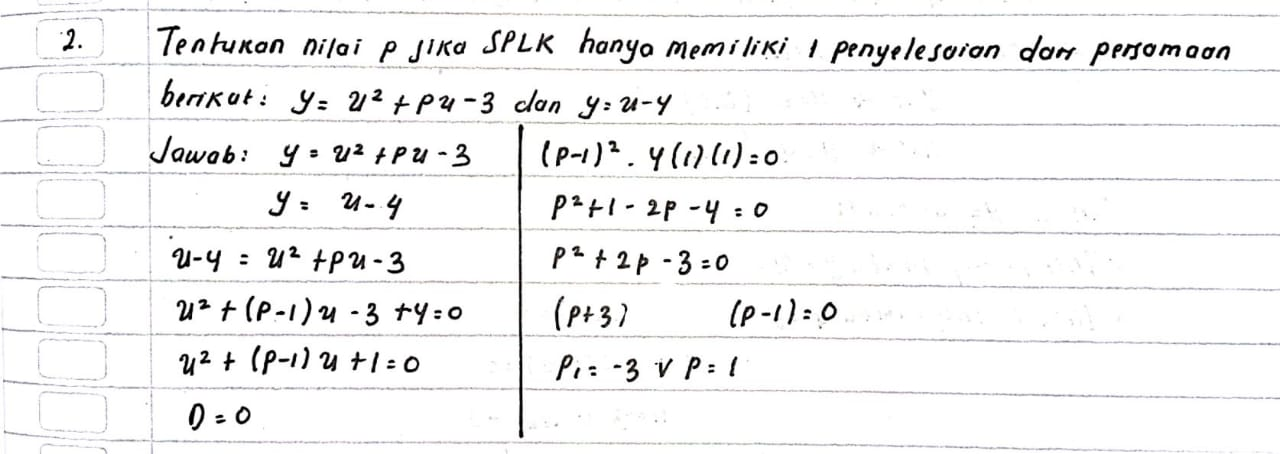 2. Tentukan nilai p jika SPLK hanya memiliki 1 penyelesaian dari persamaan
berikut: y = x² + px - 3 dan y = x - 4
Jawab: y = x² + px - 3
y = x - 4
x - 4 = x² + px - 3
x² + (p-1)x - 3 + 4 = 0
x² + (p-1)x + 1 = 0
D = 0
(p-1)² . 4(1)(1) = 0
p² + 1 - 2p - 4 = 0
p² + 2p - 3 = 0
(p+3) (p-1) = 0
P₁ = -3 v P = 1